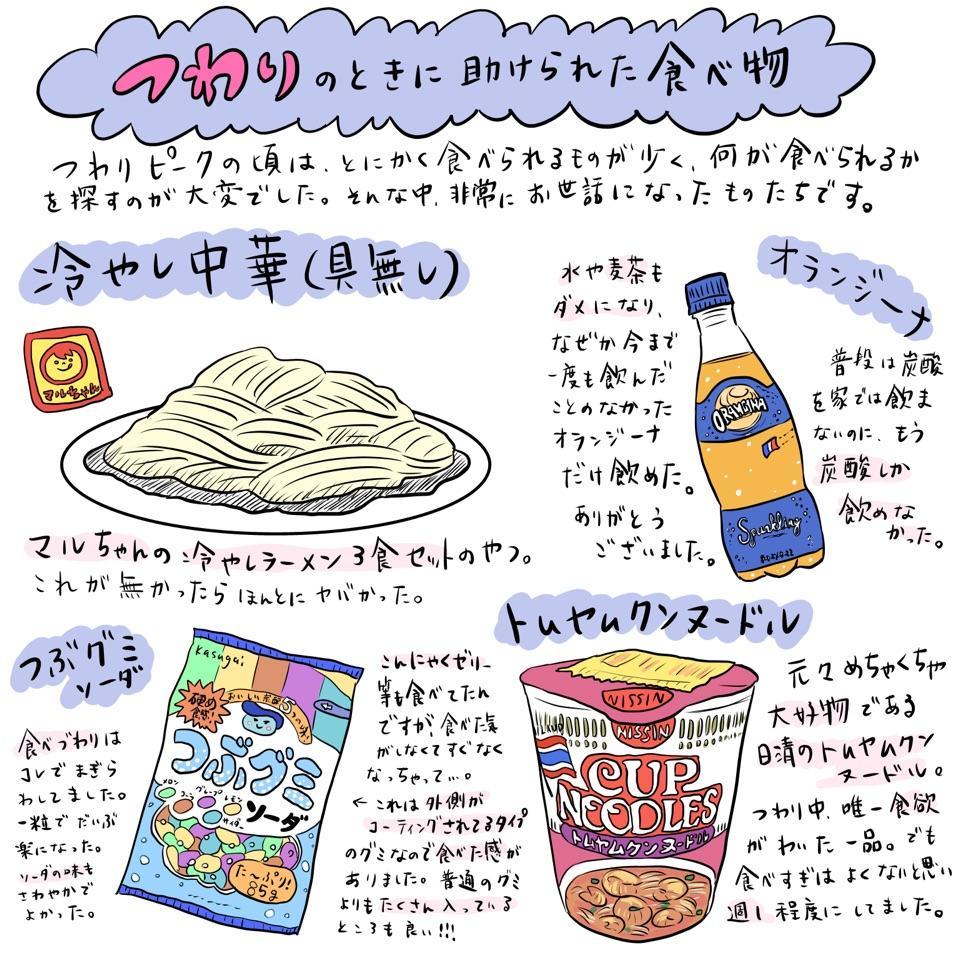 つわりのときに助けられた食べ物
つわりピークの頃は、とにかく食べられるものが少く、何が食べられるか
を探すのが大変でした。そんな中、非常にお世話になったものたちです。
冷やし中華(具無し)
マルちゃん
マルちゃんの冷やしラーメン3食セットのやつ。
これが無かったらほんとにヤバかった。
オランジーナ
水や麦茶も
ダメになり、
なぜか今まで
一度も飲んだ
ことのなかった
オランジーナ
だけ飲めた。
ありがとう
ございました。
ORANGINA
Sparkling
普段は炭酸
を家では飲ま
ないのに、もう
炭酸しか
飲めな
かった。
つぶグミ
ソーダ
食べづわりは
コレでまぎら
わしてました。
一粒でだいぶ
楽になった。
ソーダの味も
さわやかで
よかった。
kasugai
硬め
食感!
おいしい炭酸5つの味
つぶグミ
ソーダ
メロン
コーラ
グレープ
レモン
サイダー
た〜ぷり!
85g
こんにゃくゼリー
等も食べてたん
ですが、食べた気
がしなくてすぐなく
なっちゃって…。
←これは外側が
コーティングされてるタイプ
のグミなので食べた感が
ありました。普通のグミ
よりもたくさん入っている
ところも良い!!!
トムヤムクンヌードル
NISSIN
NISSIN
CUP
NOODLES
トムヤムクンヌードル
元々めちゃくちゃ
大好物である
日清のトムヤムクン
ヌードル。
つわり中、唯一食欲
がわいた一品。でも
食べすぎはよくないと思い
週1程度にしてました。